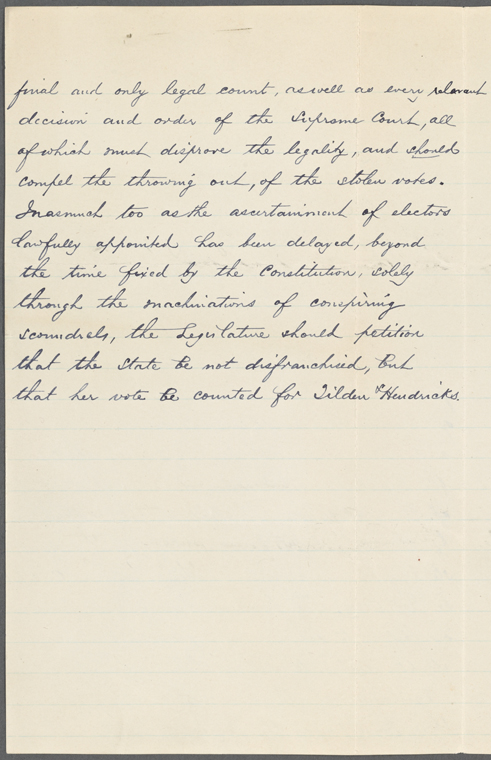 final and only legal count, as well as every relevant
decision and order of the Supreme Court, all
of which must disprove the legality, and should
compel the throwing out, of the stolen votes.
Inasmuch too as the ascertainment of electors
lawfully appointed has been delayed, beyond
the time fixed by the Constitution, solely
through the machinations of conspiring
scoundrels, the Legislature should petition
that the State be not disfranchised, but
that her vote be counted for Tilden & Hendricks.